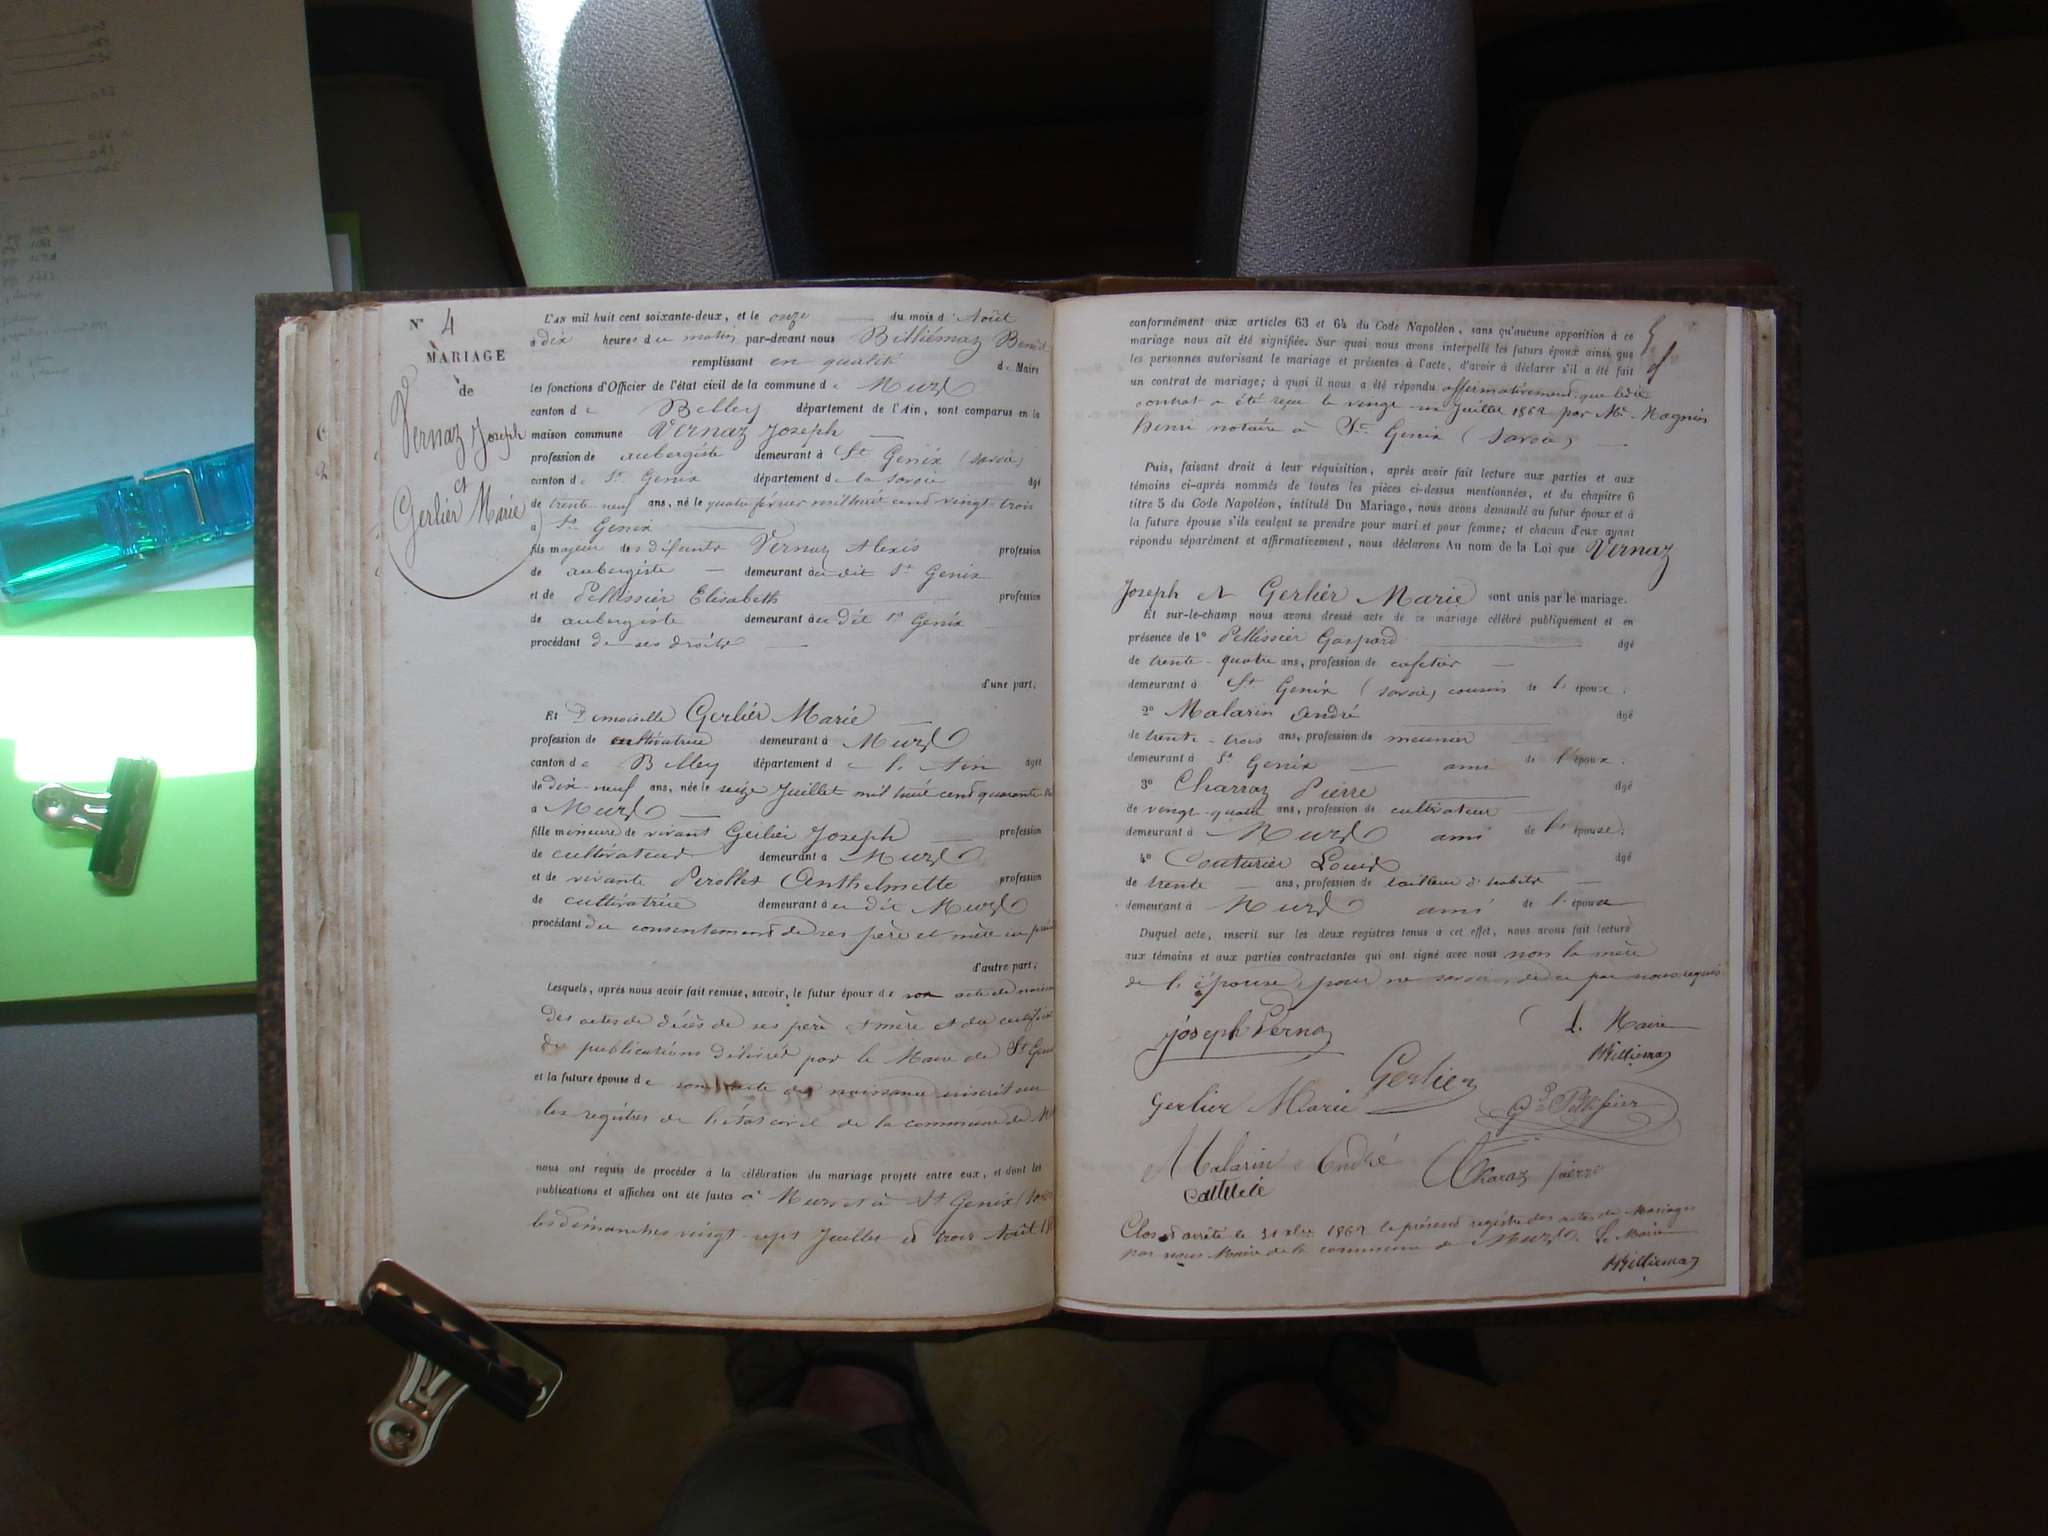 N° 4
MARIAGE
de
Vernaz Joseph
et
Gerlier Marie
L'AN mil huit cent soixante-deux, et le onze du mois d' Août
à dix heures du matin par-devant nous Billiémaz Benoit
remplissant en qualité de Maire
les fonctions d'Officier de l'état civil de la commune de Murs
canton de Belley département de l'Ain, sont comparus en la
maison commune Vernaz Joseph
profession de aubergiste demeurant à St Genix (Savoie)
canton de St Genix département de la Savoie âgé
de trente-neuf ans, né le quatre février mil huit cent vingt trois
à St Genix
fils majeur des défunts Vernaz Alexis profession
de aubergiste demeurant au dit St Genix
et de Pellissier Elisabeth profession
de aubergiste demeurant au dit St Genix
procédant de ses droits
d'une part,
Et Demoiselle Gerlier Marie
profession de cultivatrice demeurant à Murs
canton de Belley département de l'Ain âgée
de dix-neuf ans, née le seize Juillet mil huit cent quarante
à Murs
fille mineure de vivant Gerlier Joseph profession
de cultivateur demeurant à Murs
et de vivante Perollet Anthelmette profession
de cultivatrice demeurant au dit Murs
procédant du consentement de ses père et mère
d'autre part;
Lesquels, après nous avoir fait remise, savoir, le futur époux de son acte de
des actes de décès de ses père et mère et du
de publications délivré par le Maire de St
et la future épouse de son acte de naissance inscrit sur
les registres de l'état civil de la commune de
nous ont requis de procéder à la célébration du mariage projeté entre eux, et dont les
publications et affiches ont été faites à Murs et à St Genix
les dimanches vingt-sept Juillet et trois Août
conformément aux articles 63 et 64 du Code Napoléon, sans qu'aucune opposition à ce
mariage nous ait été signifiée. Sur quoi nous avons interpellé les futurs époux ainsi que
les personnes autorisant le mariage et présentes à l'acte, d'avoir à déclarer s'il a été fait
un contrat de mariage; à quoi il nous a été répondu affirmativement, que ledit
contrat a été reçu le vingt-un Juillet 1862 par Me Magnin
henri notaire à St Genix (Savoie)
Puis, faisant droit à leur réquisition, après avoir fait lecture aux parties et aux
témoins ci-après nommés de toutes les pièces ci-dessus mentionnées, et du chapitre 6
titre 5 du Code Napoléon, intitulé Du Mariage, nous avons demandé au futur époux et à
la future épouse s'ils veulent se prendre pour mari et pour femme; et chacun d'eux ayant
répondu séparément et affirmativement, nous déclarons Au nom de la Loi que Vernaz
Joseph et Gerlier Marie sont unis par le mariage.
Et sur-le-champ nous avons dressé acte de ce mariage célébré publiquement et en
présence de 1° Pellissier Gaspard âgé
de trente-quatre ans, profession de cafetier
demeurant à St Genix (Savoie) cousin de l'époux;
2° Malarin André âgé
de trente-trois ans, profession de meunier
demeurant à St Genix ami de l'époux;
3° Charraz Pierre âgé
de vingt-quatre ans, profession de cultivateur
demeurant à Murs ami de l'épouse;
4° Couturier Louis âgé
de trente ans, profession de tailleur d'habits
demeurant à Murs ami de l'épouse
Duquel acte, inscrit sur les deux registres tenus à cet effet, nous avons fait lecture
aux témoins et aux parties contractantes qui ont signé avec nous non la mère
de l'épouse, pour ne savoir, de ce par nous requis
joseph Vernaz
L. Maire
Billiemaz
Gerlier Marie
Gerlier
Malarin André
Charaz pierre
Clos et arrêté le 31 xbre 1862 le présent registre des actes de Mariages
par nous Maire de la commune de Murs. Le Maire
Billiemaz